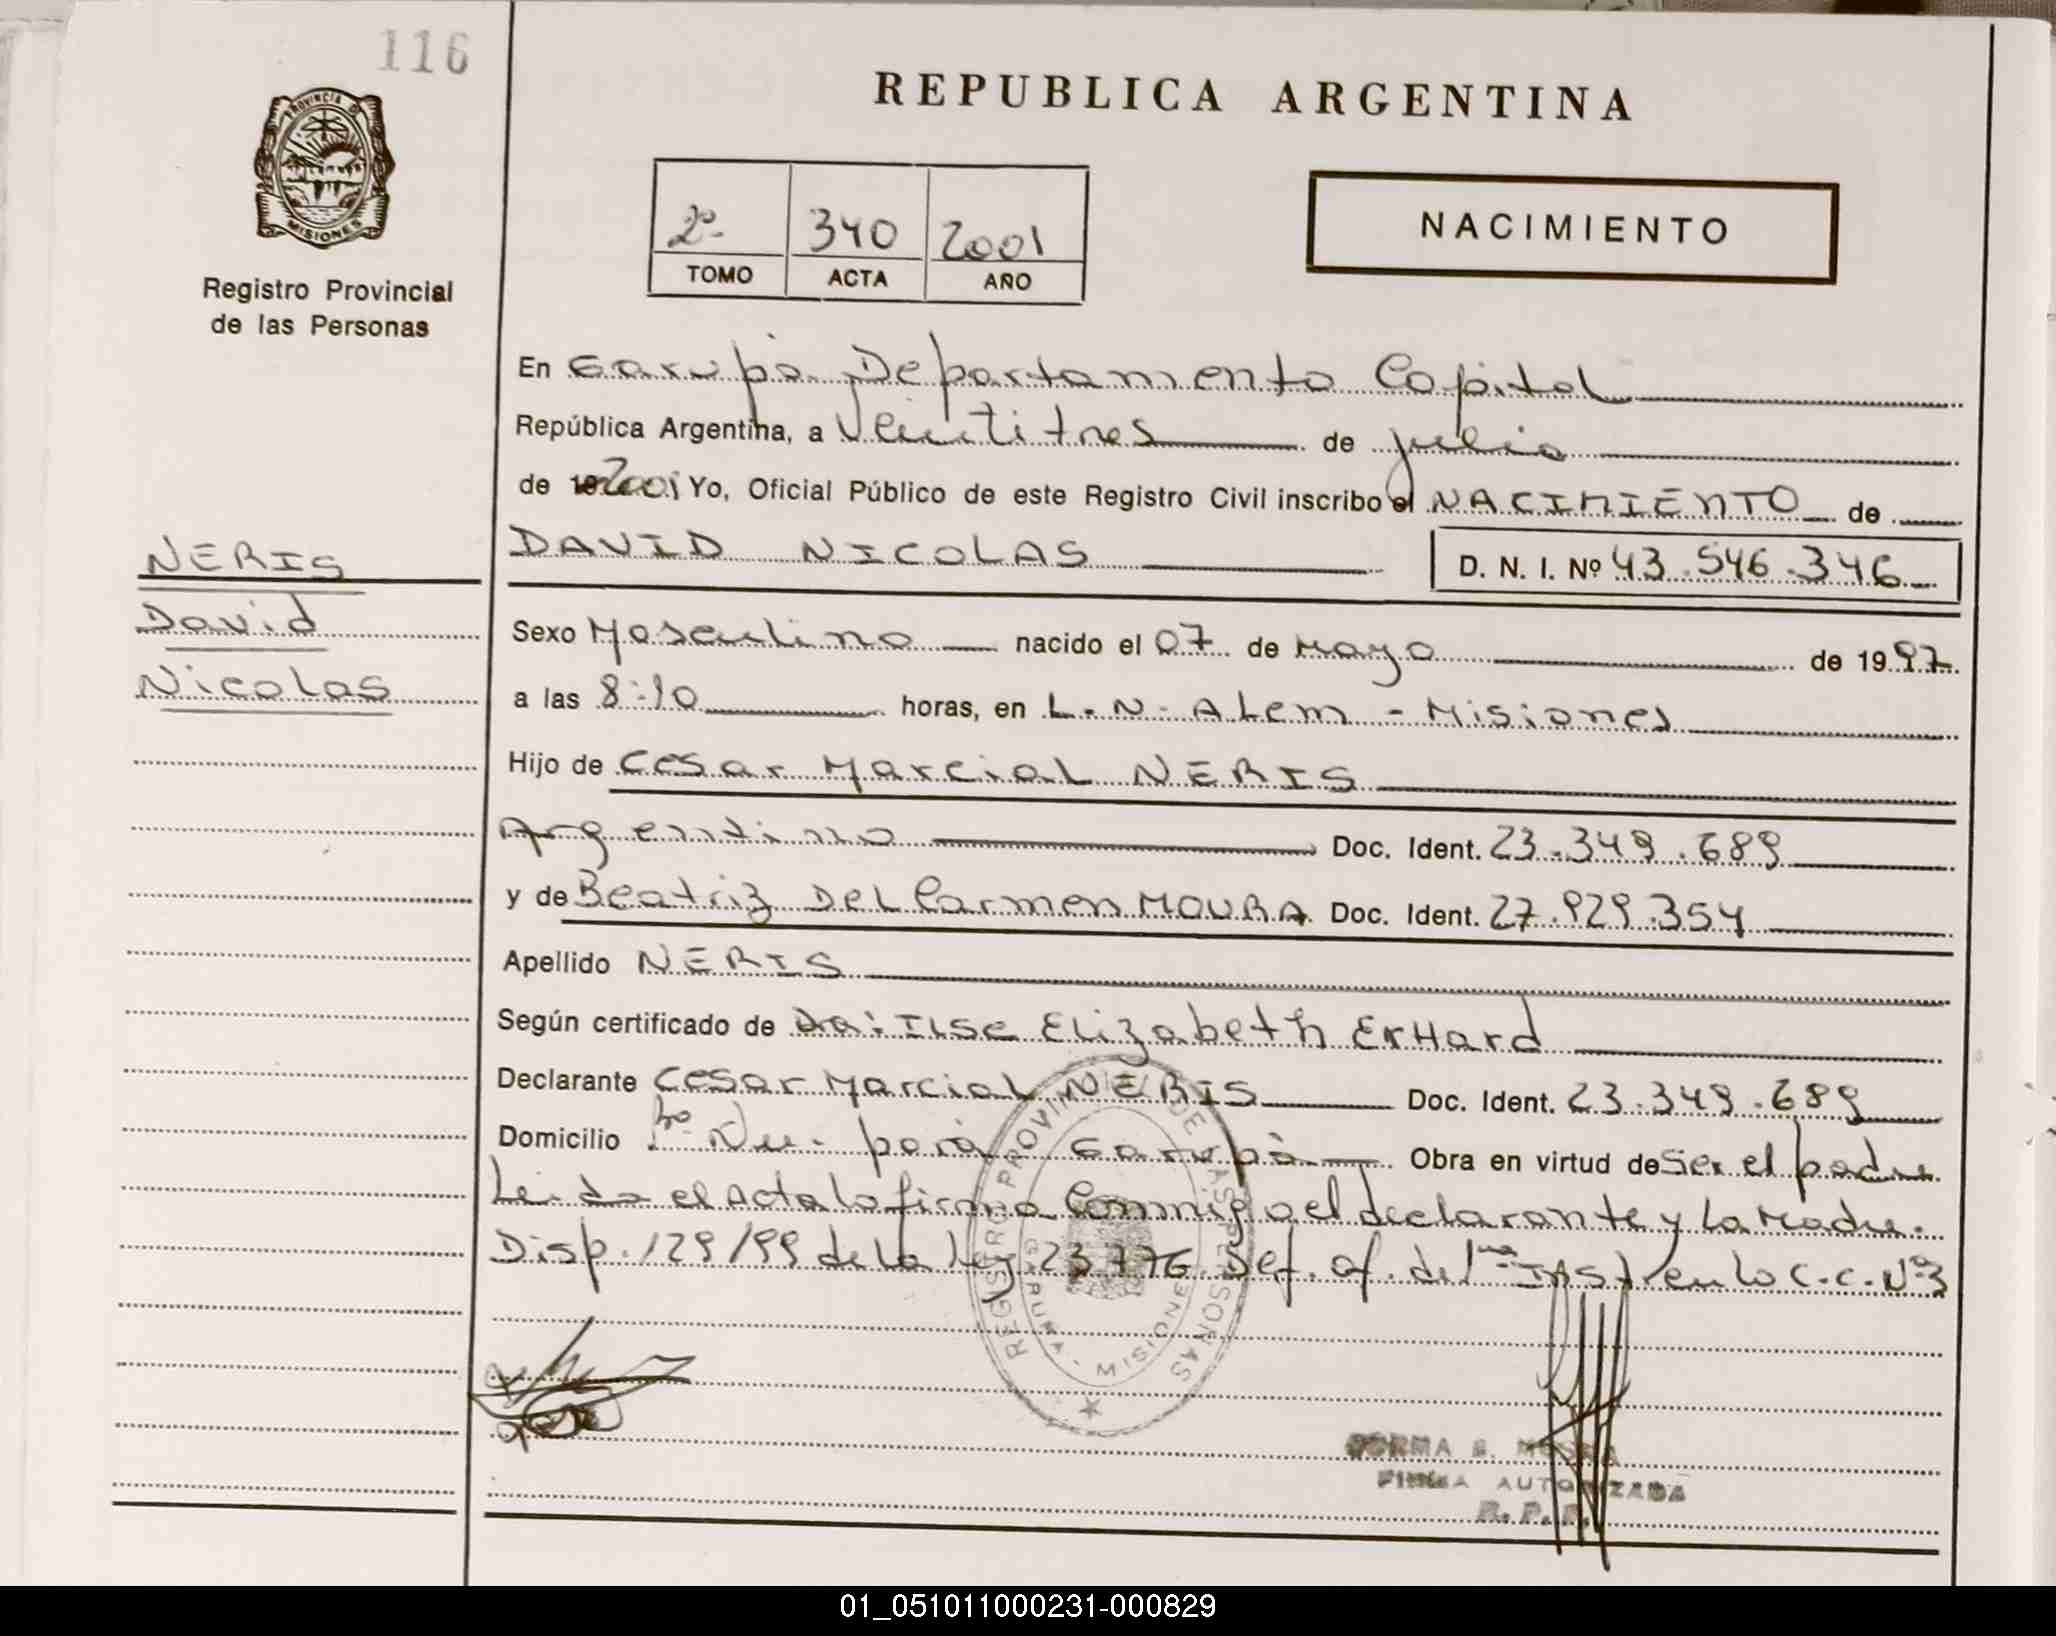 116
REPUBLICA ARGENTINA
PROVINCIA DE
MISIONES
Registro Provincial
de las Personas
2º 340 2001
TOMO ACTA AÑO
NACIMIENTO
En Garupá Departamento Capital
República Argentina, a Veintitres de julio
de 2001 Yo, Oficial Público de este Registro Civil inscribo el NACIMIENTO de
DAVID NICOLAS D. N. I. Nº 43.546.346
NERIS
David
Nicolas
Sexo Masculino nacido el 07 de Mayo de 1997
a las 8:10 horas, en L. N. Alem - Misiones
Hijo de Cesar Marcial NERIS
Argentino Doc. Ident. 23.349.689
y de Beatriz Del Carmen MOURA Doc. Ident. 27.929.354
Apellido NERIS
Según certificado de Dra: Ilse Elizabeth ErHard
Declarante Cesar Marcial NERIS Doc. Ident. 23.349.689
Domicilio Bº Ñu-porá Garupá Obra en virtud de Ser el padre
Leida el Acta la firma Conmigo el declarante y La Madre.
Disp. 129/99 de la Ley 23776 Def. of. del 1ra INST en lo C.C. Nº3
REGISTRO PROVINCIAL DE LAS PERSONAS
GARUPA - MISIONES
NORMA B.
FIRMA AUTORIZADA
R. P. P.
01_051011000231-000829